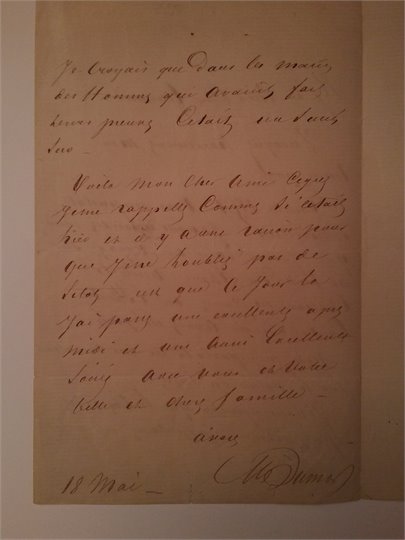 Je croyais que dans les mains
des hommes qui avaient fait
leurs preuves c'était un sauf
Voila mon cher ami ce que
je me rappelle comme si c'était
hier et il y a une raison pour
que je ne l'oublie pas de
sitot c'est que le jour la
j'ai passé une excellente après
midi et une aussi excellente
soirée avec vous et votre
belle et chère famille –
à vous
Alex Dumas
18 Mai –